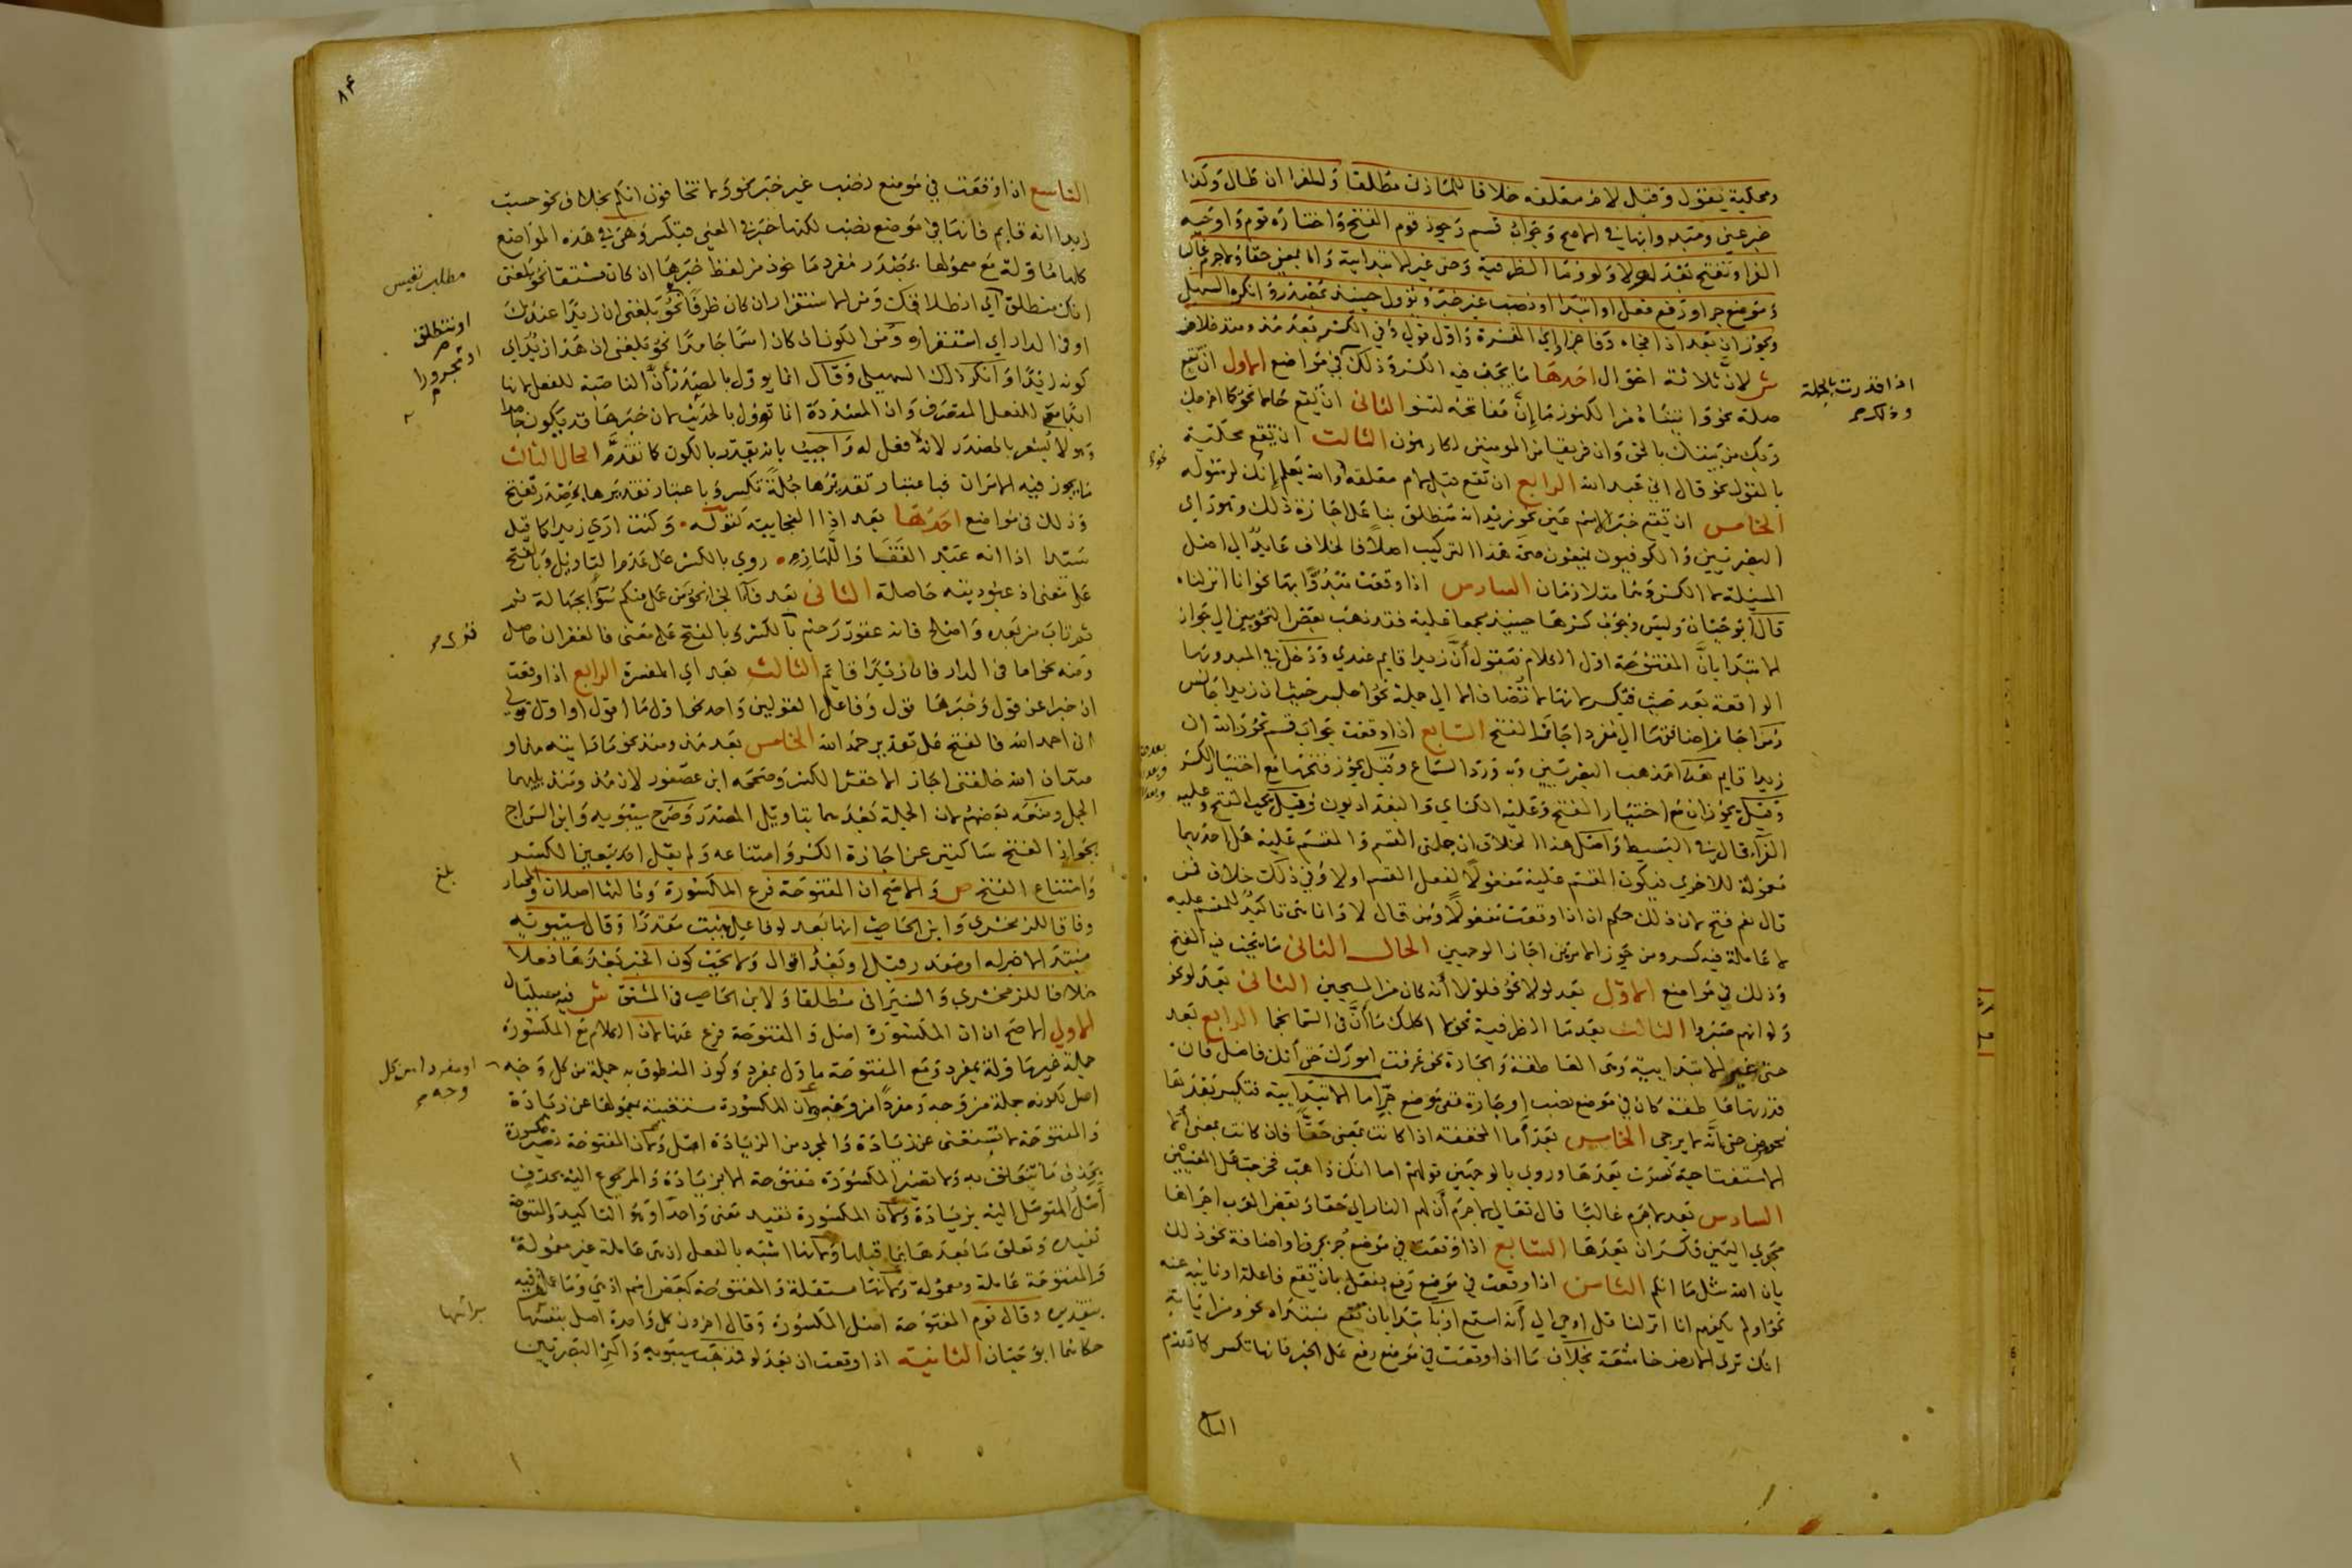 ومحكية بقول وقبل لام معلقة خلافا للمازني مطلقا وللفرا ان طال وكذا
خبر عين ومبدوا بها في الاصح وجواب قسم وجوز قوم الفتح واختاره قوم واوجبه
الفرا وتفتح بعد لو ولولا وما الظرفية وحتى غير الابتدائية واما بمعنى حقا ولا جرم غالبا
وموضع جر او رفع فعل او ابتدا او نصب غير خبر وتؤول حينئذ بمصدر وانكره السهيلي
ويجوزان بعد اذا فجاه وفا جزا واي المفسرة واول قولي وفي الكسر بعد مذ ومنذ خلاف
ش لان ثلاثة احوال احدها ما يجب فيه الكسر وذلك في مواضع الاول ان تقع
صلة نحو واتيناه من الكنوز ما إن مفاتحه لتنو الثاني ان تقع حالا نحو كما اخرجك
ربك من بيتك بالحق وان فريقا من المومنين لكارهون الثالث ان تقع محكية
بالقول نحو قال اني عبد الله الرابع ان تقع قبل لام معلقة والله يعلم إنك لرسوله
الخامس ان تقع خبرا لاسم عين نحو زيد انه منطلق بنا على اجازة ذلك وهو راي
البصريين والكوفيون يمنعون صحة هذا التركيب اصلا فالخلاف عايد الى اصل
المسئلة لا الكسر وهما متلازمان السادس اذا وقعت مبدوا بها نحو انا انزلناه
قال ابو حيان وليس وجوب كسرها حينئذ مجمعا عليه فقد ذهب بعض النحويين الى جواز
الابتدا بان المفتوحة اول الكلام فتقول أن زيدا قايم عندي ودخل في المبدو بها
الواقعة بعد حيث فتكسر لانها لا تضاف الا الى جملة نحو اجلس حيث ان زيدا جالس
ومن اجاز اضافتها الى المفرد اجاز الفتح السابع اذا وقعت جواب قسم نحو والله ان
زيدا قايم هذا مذهب البصريين وبه ورد السماع وقيل يجوز فتحها مع اختيار الكسر
وقيل يجوزان مع اختيار الفتح وعليه الكساي والبغداديون وقيل يجب الفتح وعليه
الفراء قال في البسيط واصل هذا الخلاف ان جملتي القسم والمقسم عليه هل احديهما
معمولة للاخرى فيكون المقسم عليه مفعولا لفعل القسم اولا وفي ذلك خلاف فمن
قال نعم فتح لان ذلك حكم ان اذا وقعت مفعولا ومن قال لا وانما هي تاكيد للمقسم عليه
لا عاملة فيه كسر ومن جوز الامرين اجاز الوجهين الحال الثاني ما يجب فيه الفتح
وذلك في مواضع الاول بعد لولا نحو فلولا أنه كان من المسبحين الثاني بعد لو نحو
ولو انهم صبروا الثالث بعد ما الظرفية نحو لا اكلمك ما أن في السما نجما الرابع بعد
حتى غير الابتداييه وهى العاطفة والجارة نحو عرفت امورك حتى أنك فاضل فان
قدرتها عاطفة كان في موضع نصب او جارة ففي موضع جر اما الابتدايية فتكسر بعدها
نحو مرض حتى انه لا يرجى الخامس بعد أما المخففة اذا كانت بمعنى حقا فان كانت بمعنى ألا
الاستفتاحية كسرت بعدها وروي بالوجهين قولهم اما انك ذاهب فخرجت على المعنيين
السادس بعد لا جرم غالبا قال تعالى لا جرم أن لهم النار اي حقا وبعض العرب اجراها
مجرى اليمين فكسر ان بعدها السابع اذا وقعت في موضع جر بحرف او اضافة نحو ذلك
بان الله مثل ما انكم الثامن اذا وقعت في موضع رفع بفعل بان تقع فاعلة او نايبه عنه
نحو اولم يكفهم انا انزلنا قل اوحي الي أنه استمع او بابتدا بان تقع مبتداه نحو ومن اياته
انك ترى الارض خاشعة بخلاف ما اذا وقعت في موضع رفع على الخبر فانها تكسر كما تقدم
اذا قدرت بالجملة
التا
٨٤
التاسع اذا وقعت في موضع نصب غير خبر نحو ولا تخافون انكم بخلاف نحو حسبت
زيدا انه قايم فانها في موضع نصب لكنها خبر في المعنى فتكسر وهى في هذه المواضع
كلها ماولة مع معمولها بمصدر مفرد ماخوذ من لفظ خبرها ان كان مشتقا نحو بلغني
انك منطلق اي انطلاقك ومن الاستقرار ان كان ظرفا نحو بلغني ان زيدا عندك
او في الدار اي استقراره ومن الكون ان كان اسما جامدا نحو بلغني ان هذا زيد اي
كونه زيدا وانكر ذلك السهيلي وقال انما يوول بالمصدر أن الناصبة للفعل لانها
ابدا مع الفعل المتصرف وان المشددة انما تؤول بالحديث لان خبرها قد يكون جامدا
وهو لا يشعر بالمصدر لانه لا فعل له واجيب بانه يقدر بالكون كما تقدم الحال الثالث
ما يجوز فيه الامران فباعتبار تقديرها جملة تكسر وباعتبار تقديرها بمصدر تفتح
وذلك في مواضع احدها بعد اذا الفجاييه كقوله وكنت ارى زيدا كما قيل
سيدا اذا انه عبد القفا واللهازم روي بالكسر على عدم التاويل وبالفتح
على معنى اذ عبوديته حاصلة الثاني بعد فا الجزا نحو من عمل منكم سوءا بجهالة ثم
تاب من بعده واصلح فانه غفور رحيم بالكسر وبالفتح على معنى فالغفران حاصل
ومنه نحو اما في الدار فان زيدا قايم الثالث بعد اي المفسرة الرابع اذا وقعت
ان خبرا عن قول وخبرها قول وفاعل القولين واحد نحو اول ما اقول او اول قولي
اني احمد الله فالفتح على تقدير حمد الله الخامس بعد مذ ومنذ نحو ما رايته مذ او
منذ ان الله خلقني اجاز الاخفش الكسر وصححه ابن عصفور لان مذ ومنذ يليهما
الجمل ومنعه بعضهم لان الجملة بعدهما بتاويل المصدر وصرح سيبويه وابن السراج
بجواز الفتح ساكتين عن اجازة الكسر وامتناعه ولم يقل احد بتعين الكسر
وامتناع الفتح ص والاصح ان المفتوحة فرع المكسورة وثالثها اصلان والمختار
وفاقا للزمخشري وابن الحاجب انها بعد لو فاعل بثبت مقدرا وقال سيبويه
مبتدا لا خبر له او مقدر قبل او بعد اقوال ولا يجب كون الخبر بعدها فعلا
خلافا للزمخشري والسيرافي مطلقا ولابن الحاجب في المشتق ش فيه مسئلتان
الاولى الاصح ان ان المكسورة اصل والمفتوحة فرع عنها لان الكلام مع المكسورة
جملة غير ماولة بمفرد ومع المفتوحة ماول بمفرد وكون المنطوق به جملة من كل وجه
اصل لكونه جملة من وجه ومفردا من وجه ولان المكسورة مستغنية بمعمولها عن زيادة
والمفتوحة لا تستغني عن زيادة والمجرد من الزيادة اصل ولان المفتوحة تصير مكسورة
بحذف ما تتعلق به ولا تصير المكسورة مفتوحة الا بزيادة والمرجوع اليه بحذف
أصل المتوصل اليه بزيادة ولان المكسورة تفيد معنى واحدا وهو التاكيد والمفتوحة
تفيده وتعلق ما بعدها بما قبلها ولانها اشبه بالفعل اذ هي عاملة غير معمولة
والمفتوحة عاملة ومعمولة ولانها مستقلة والمفتوحة كبعض اسم اذ هي وما عملت فيه
بتقديره وقال قوم المفتوحة اصل المكسورة وقال اخرون كل واحدة اصل بنفسها
حكاهما ابو حيان الثانية اذا وقعت ان بعد لو فمذهب سيبويه واكثر البصريين
مطلب نفيس
او تنطلق
او مجرورا
بلغ
او مفردا من كل
وجه